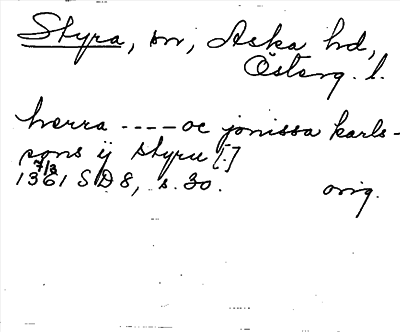 Styra, sn, Aska hd,
Österg. l.
herra ---- oc jonissa karls-
sons ij styru [.]
1361 7/3 SD 8, s. 30. orig.